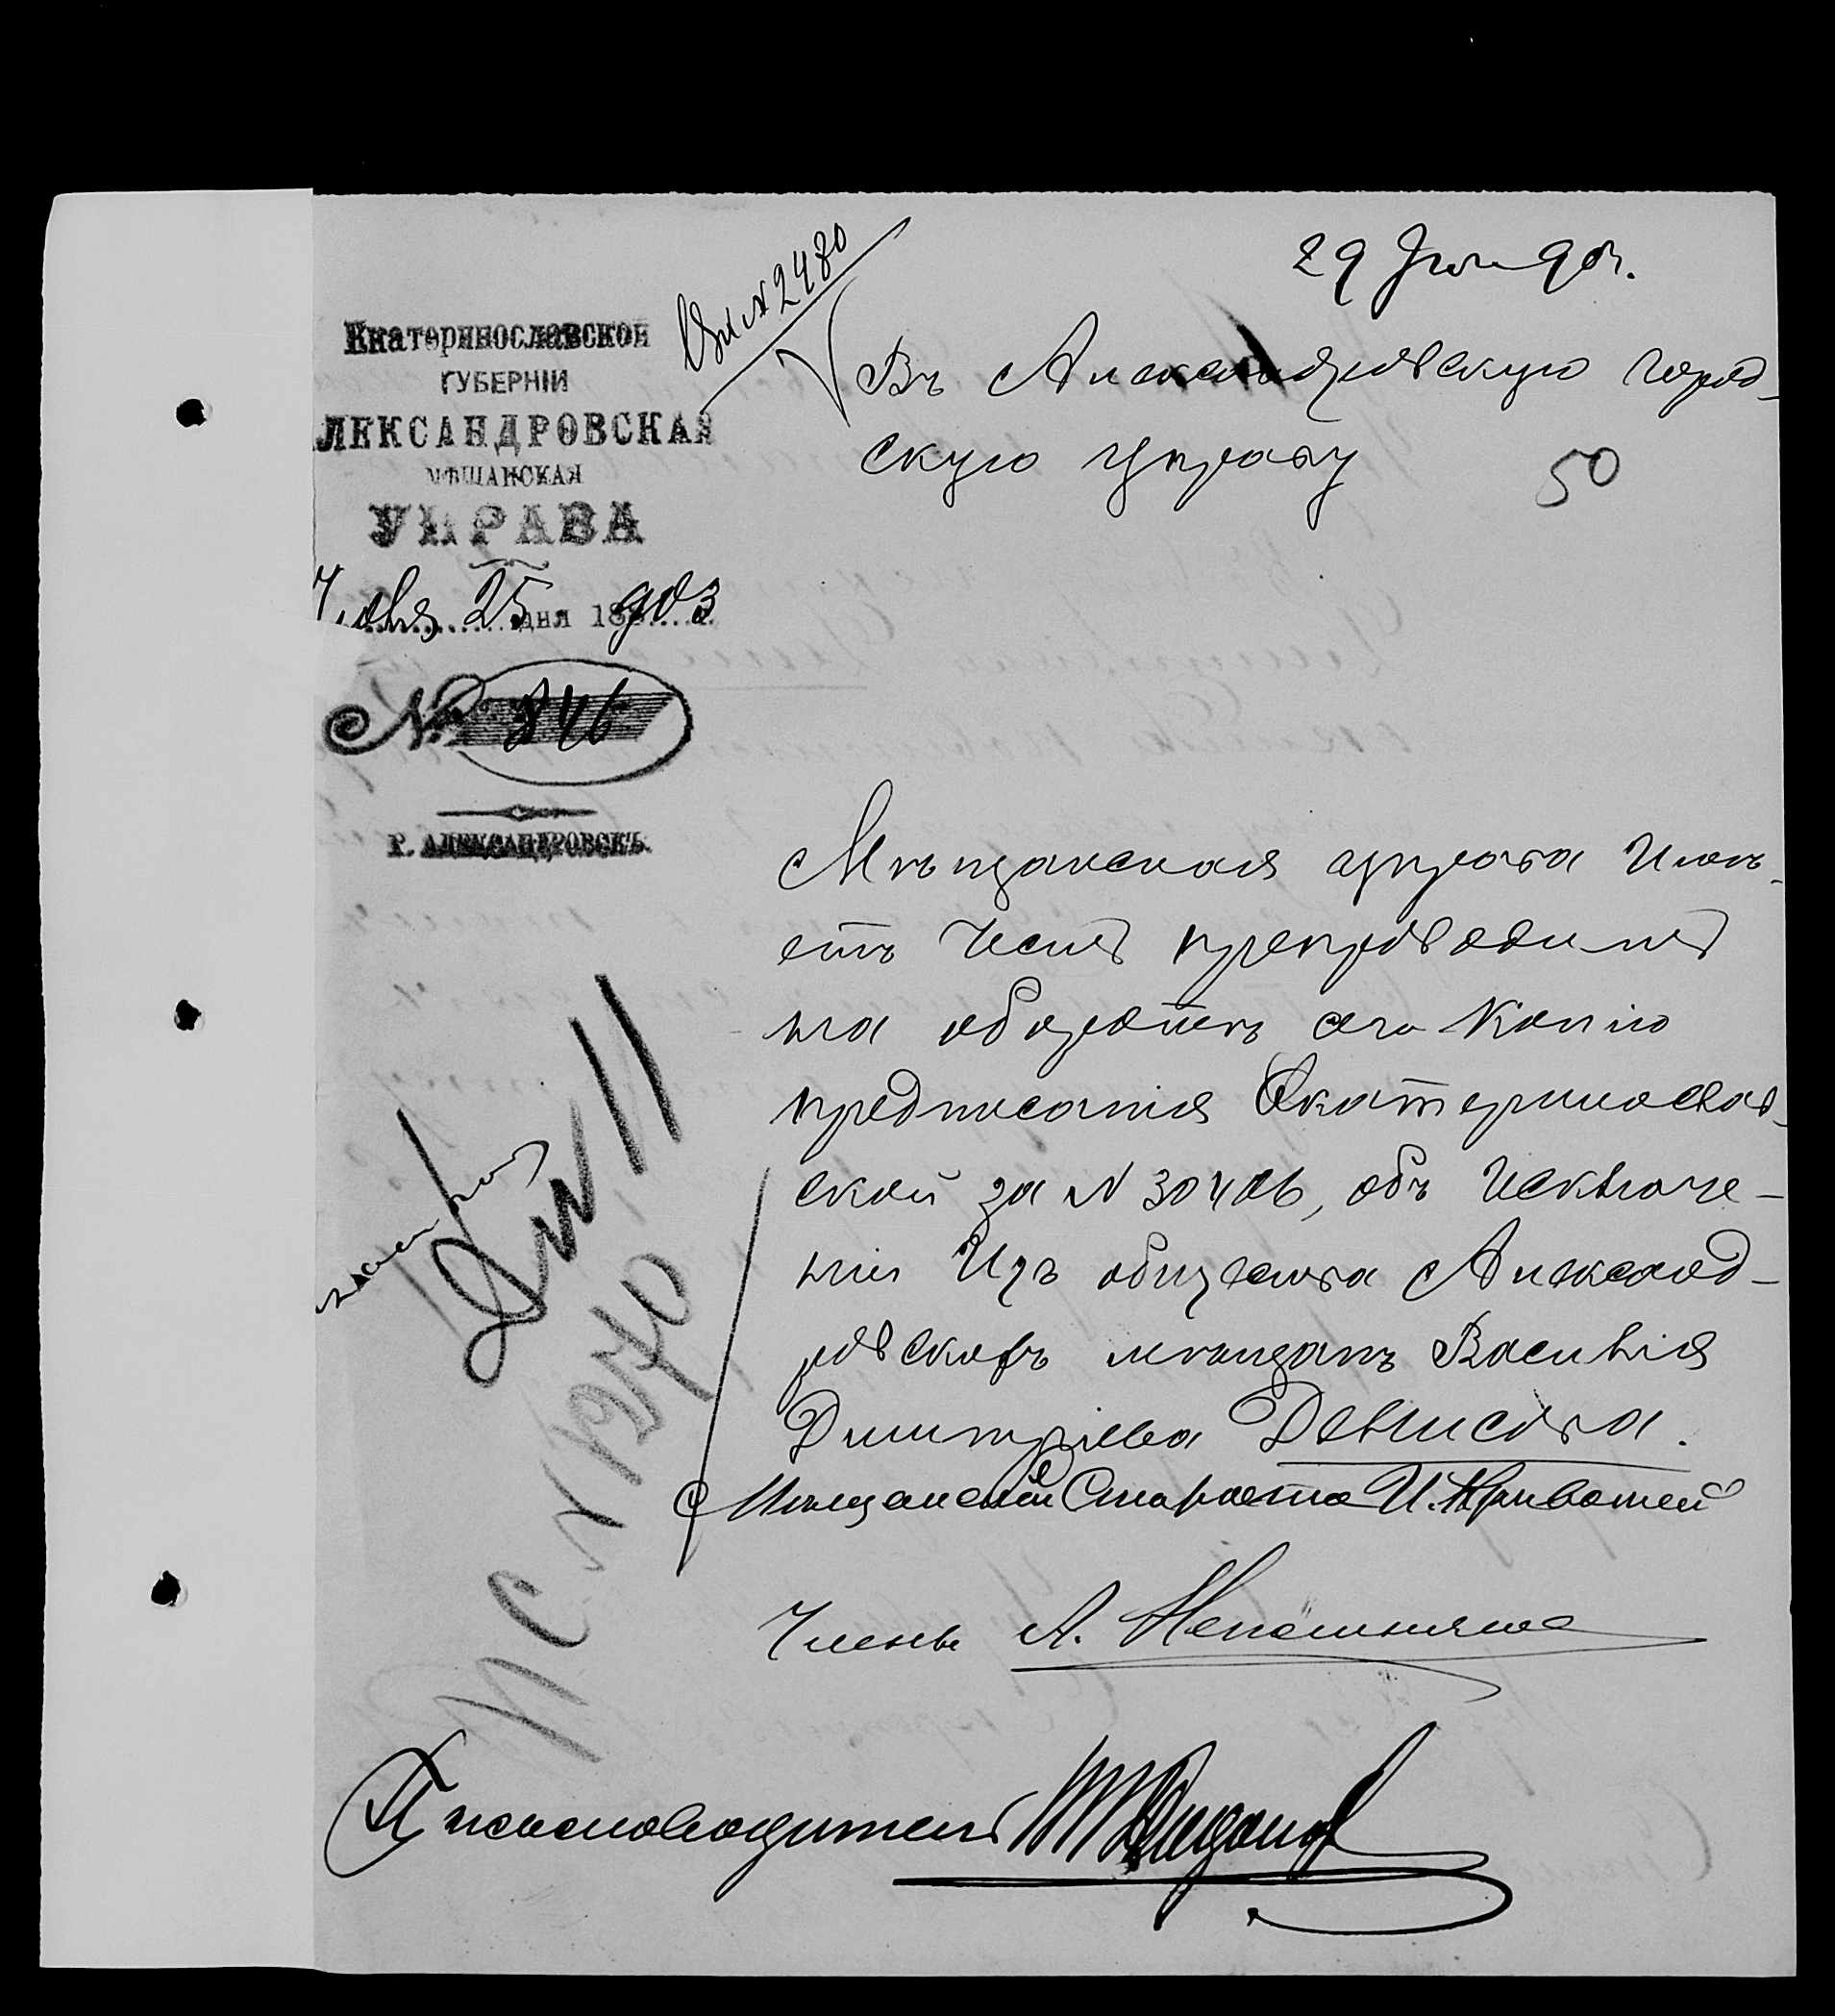 29 Іюн 903.
Вх № 2480
Екатеринославской
ГУБЕРНІИ
ЛЕКСАНДРОВСКАЯ
МѢЩАНСКАЯ
УПРАВА
Іюня 25 дня 1903
№ 846
Г. АЛЕКСАНДРОВСКЪ.
Въ Александровскую город-
скую управу
50
Мѣщанская управа имѣ-
етъ честь препроводить
на оборотѣ сего копію
предписанія Екатеринослав-
ской за № 30406, объ исключе-
ніи изъ общества Александ-
ровскихъ мѣщанъ Василія
Дмитріева Денисова.
Мѣщанскій Староста И. Кривошей
Членъ А. Непомняще
Письмоводитель